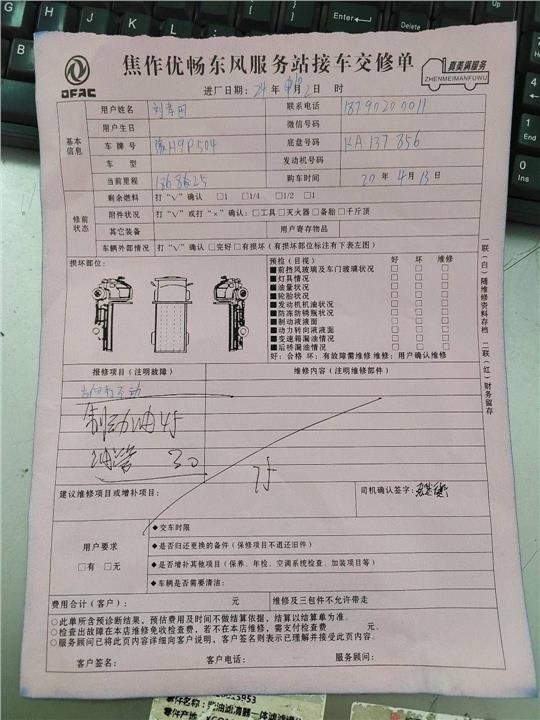 焦作优畅东风服务站接车交修单
DFAC
真美满服务
ZHENMEIMANFUWU
进厂日期: 24 年 月 2 日 时
基本信息
用户姓名
联系电话 18790200011
用户生日
微信号码
车牌号 豫H9P504
底盘号码 KA137856
车型
发动机号码
当前里程 1868625
购车时间 20 年 4 月 13 日
修前状态
剩余燃料 打“√”确认 □1 □1/4 □1/2 □1
附件状况 打“√”或打“×”确认:□工具□灭火器□备胎□千斤顶
其它装备
用户寄存物品
车辆外部情况 打“√”确认 □完好□有损坏(有损坏部位标注有下表左图)
损坏部位:
预检(目视) 好 坏 维修
■前挡风玻璃及车门玻璃状况 □ □ □
■灯具情况 □ □ □
■油量状况 □ □ □
■轮胎状况 □ □ □
■发动机机油状况 □ □ □
■防冻防锈瓶状况 □ □ □
■制动液液面 □ □ □
■动力转向液液面 □ □ □
■变速箱漏油情况 □ □ □
■后桥漏油情况 □ □ □
好:合格 坏:有故障需维修 维修:用户确认维修
报修项目(注明故障)
维修内容(注明维修部件)
方向打不动
制动油 45
油管 30
75
建议维修项目或增补项目:
司机确认签字:
用户要求
□有 □无
◆交车时限
◆是否归还更换的备件(保修项目不退还旧件)
◆是否增补其他项目(保养、年检、空调系统检查、加装项目等)
◆车辆是否需要清洁:
费用合计(客户): 元
维修及三包件不允许带走
○此单所含预诊断结果,预估费用及时间不做结算依据,结算以结算单为准。
○检查出故障在本店维修免收检查费,若不在本店维修,需支付检查费 元。
○服务顾问已将此页内容详细向客户说明,客户签名则表示已理解并接受此页内容.
客户签名: 客户电话: 服务顾问:
一联(白)随维修资料存档 二联(红)财务留存
Enter
Delete
End